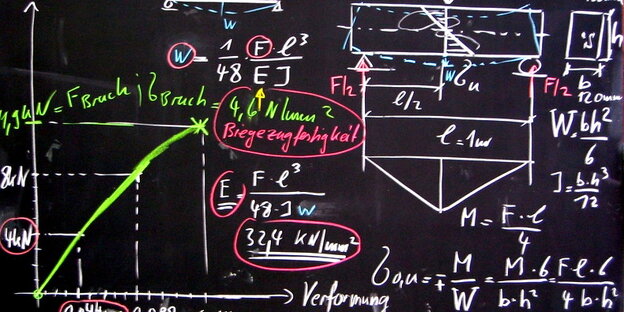 w
w = 1/48 · F · l³ / E J
,9kN = F Bruch ; σ Bruch = 4,6 N/mm²
Biegezugfestigkeit
8kN
4kN
E = F · l³ / 48 · J w
32,4 kN/mm²
Verformung
F/2
w
σu
F/2
l/2
l = 1m
M = F · l / 4
σo,u = ∓ M / W = M · 6 / b · h² = F · l · 6 / 4 b · h²
h
b
120mm
W = bh² / 6
J = b · h³ / 12